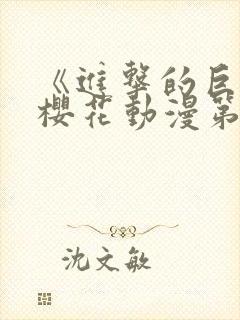 《進擊的巨
櫻花動漫第
沈文敏